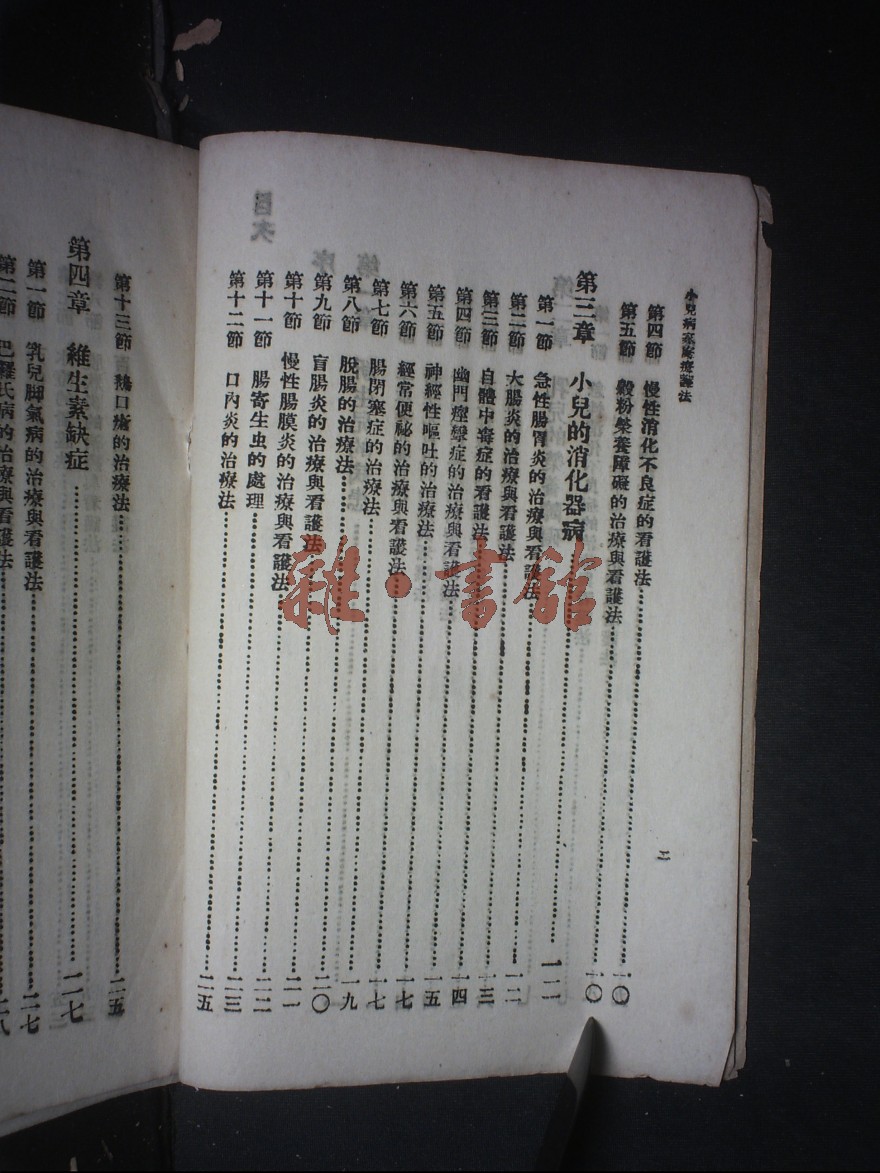 小兒病家庭療護法
二
第四節 慢性消化不良症的看護法……一〇
第五節 穀粉榮養障礙的治療與看護法……一〇
第三章 小兒的消化器病……一一
第一節 急性腸胃炎的治療與看護法……一二
第二節 大腸炎的治療與看護法……一三
第三節 自體中毒症的看護法……一四
第四節 幽門痙攣症的治療與看護法……一五
第五節 神經性嘔吐的治療法……一七
第六節 經常便祕的治療與看護法……一七
第七節 腸閉塞症的治療法……一九
第八節 脫腸的治療法……二〇
第九節 盲腸炎的治療與看護法……二一
第十節 慢性腸膜炎的治療與看護法……二二
第十一節 腸寄生虫的處理……二三
第十二節 口內炎的治療法……二五
第十三節 鵝口瘡的治療法……二五
第四章 維生素缺症……二七
第一節 乳兒脚氣病的治療與看護法……二七
第二節 巴羅氏病的治療與看護法……二八
雜·書館